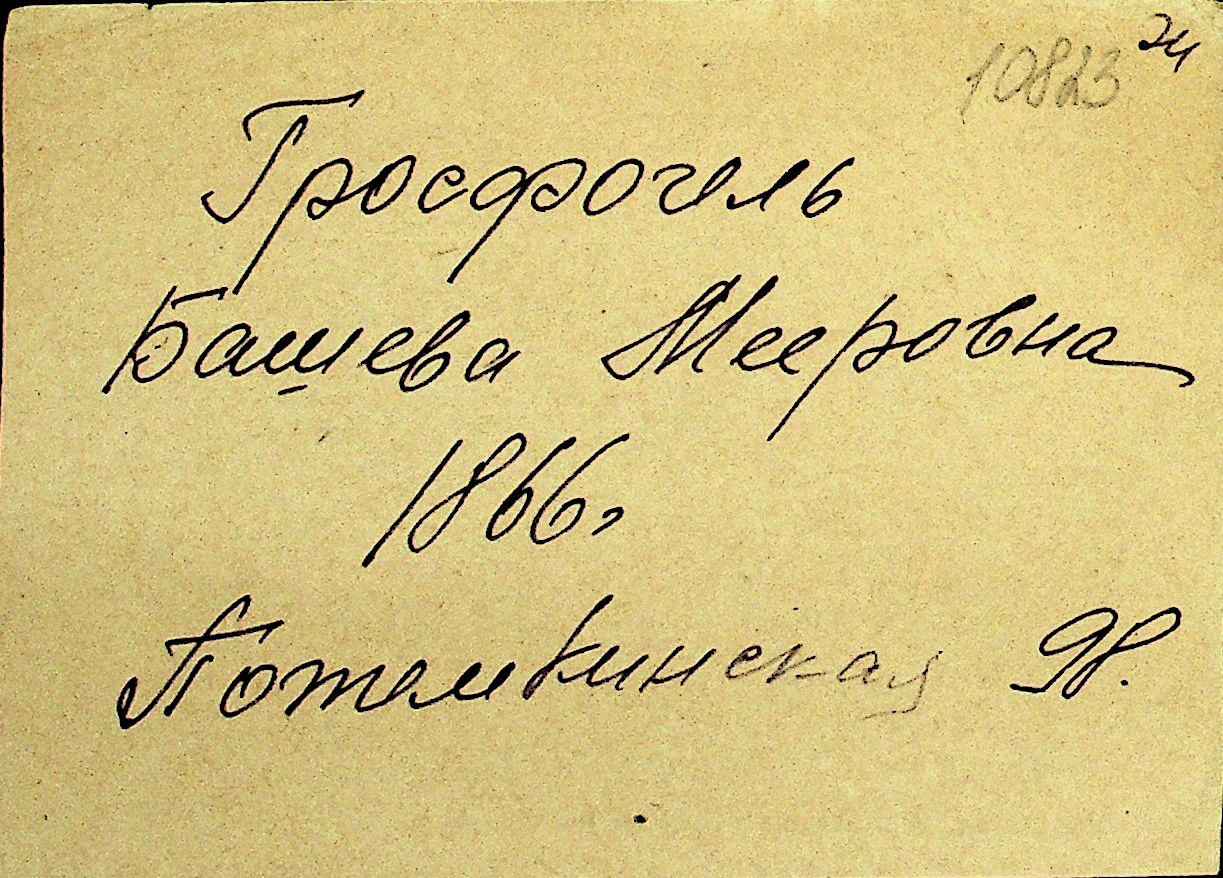 10823 24
Гросфогель
Башева Мееровна
1866,
Потемкинская 98.